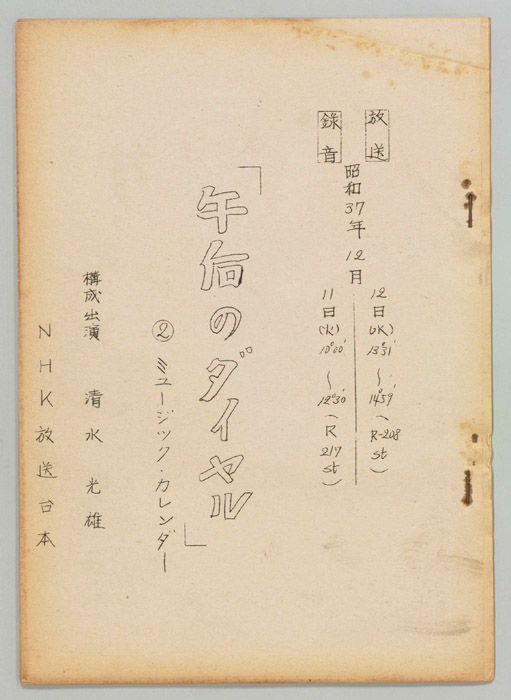 放送
録音
昭和37年12月
12日(水) 13°31′～14°59′(R-208 st)
11日(火) 10°00′～12°30′(R 217 st)
「午后のダイヤル」
② ミュージック・カレンダー
構成出演 清水光雄
NHK放送台本